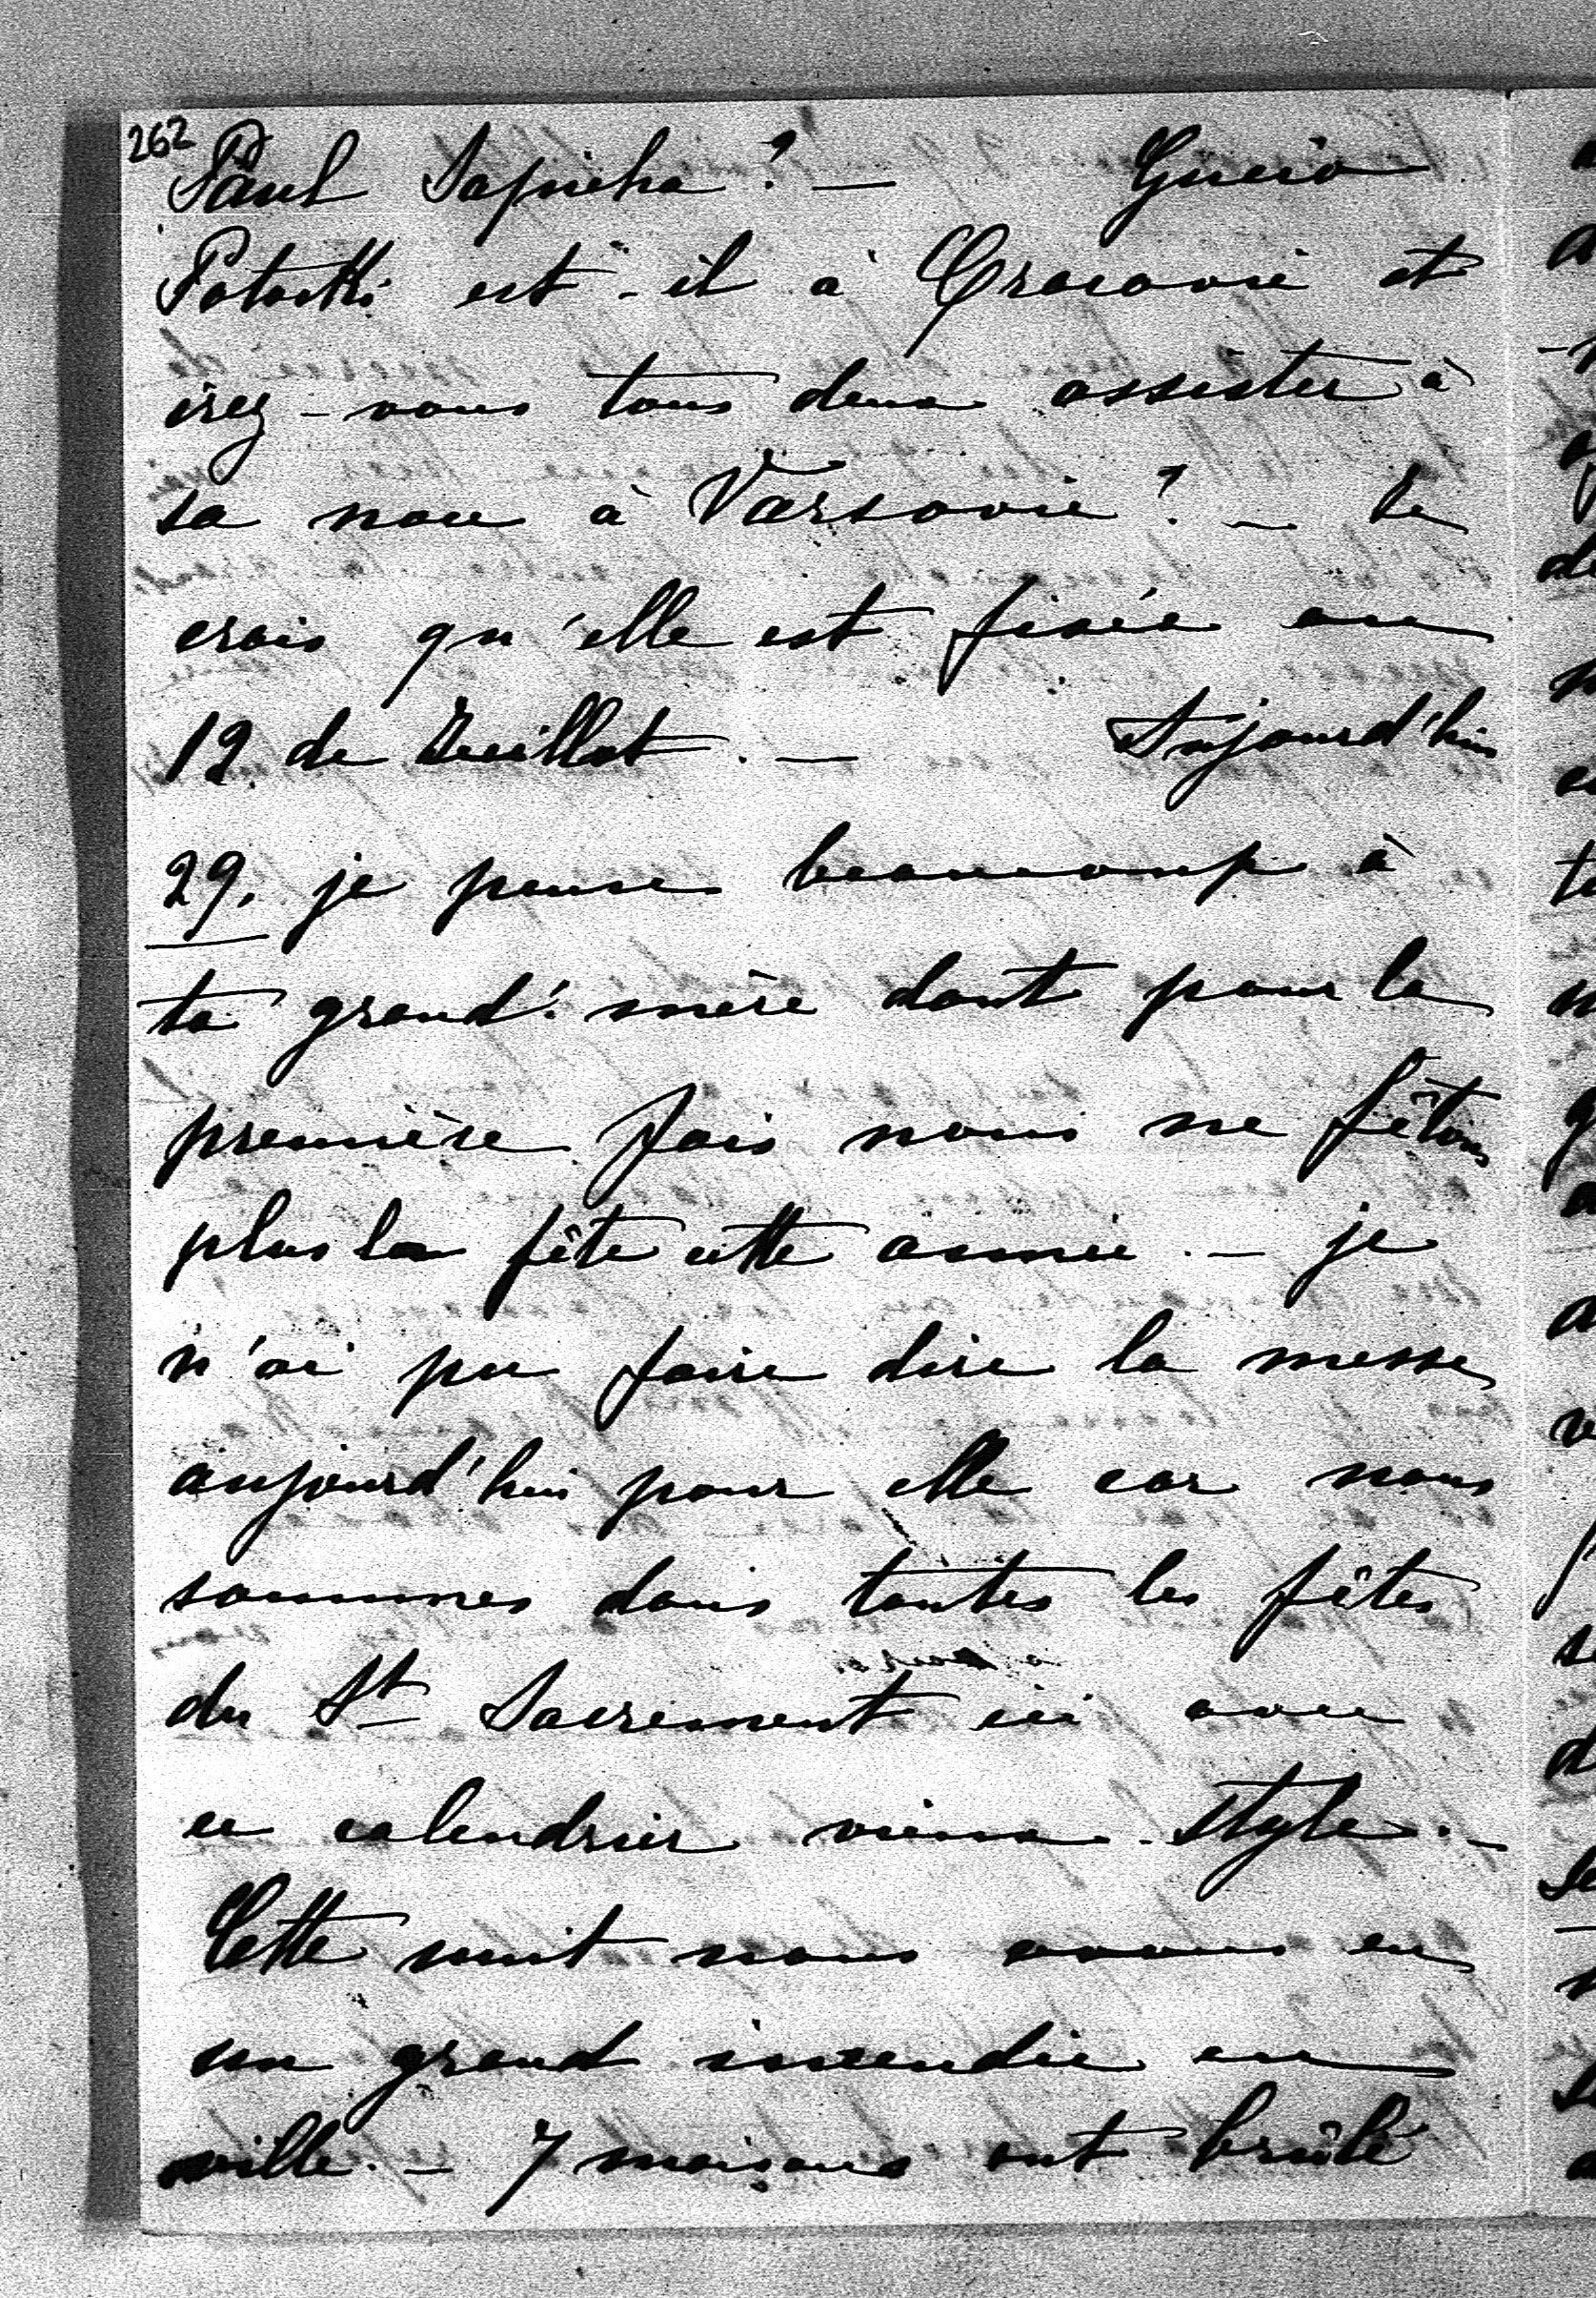 262
Paul Sapieha? — Gucio
Potocki est-il à Cracovie et
irez-vous tous deux assister à
sa noce à Varsovie? — Je
crois qu'elle est fixée au
12 de Juillet. — Aujourd'hui
29. je pense beaucoup à
ta grand'mère dont pour la
première fois nous ne fêtons
plus la fête cette année. — je
n'ai pu faire dire la messe
aujourd'hui pour elle car nous
sommes dans toutes les fêtes
du St Sacrement ici avec
ce calendrier vieux style. —
Cette nuit nous avons eu
un grand incendie en
ville. — 7 maisons ont brûlé